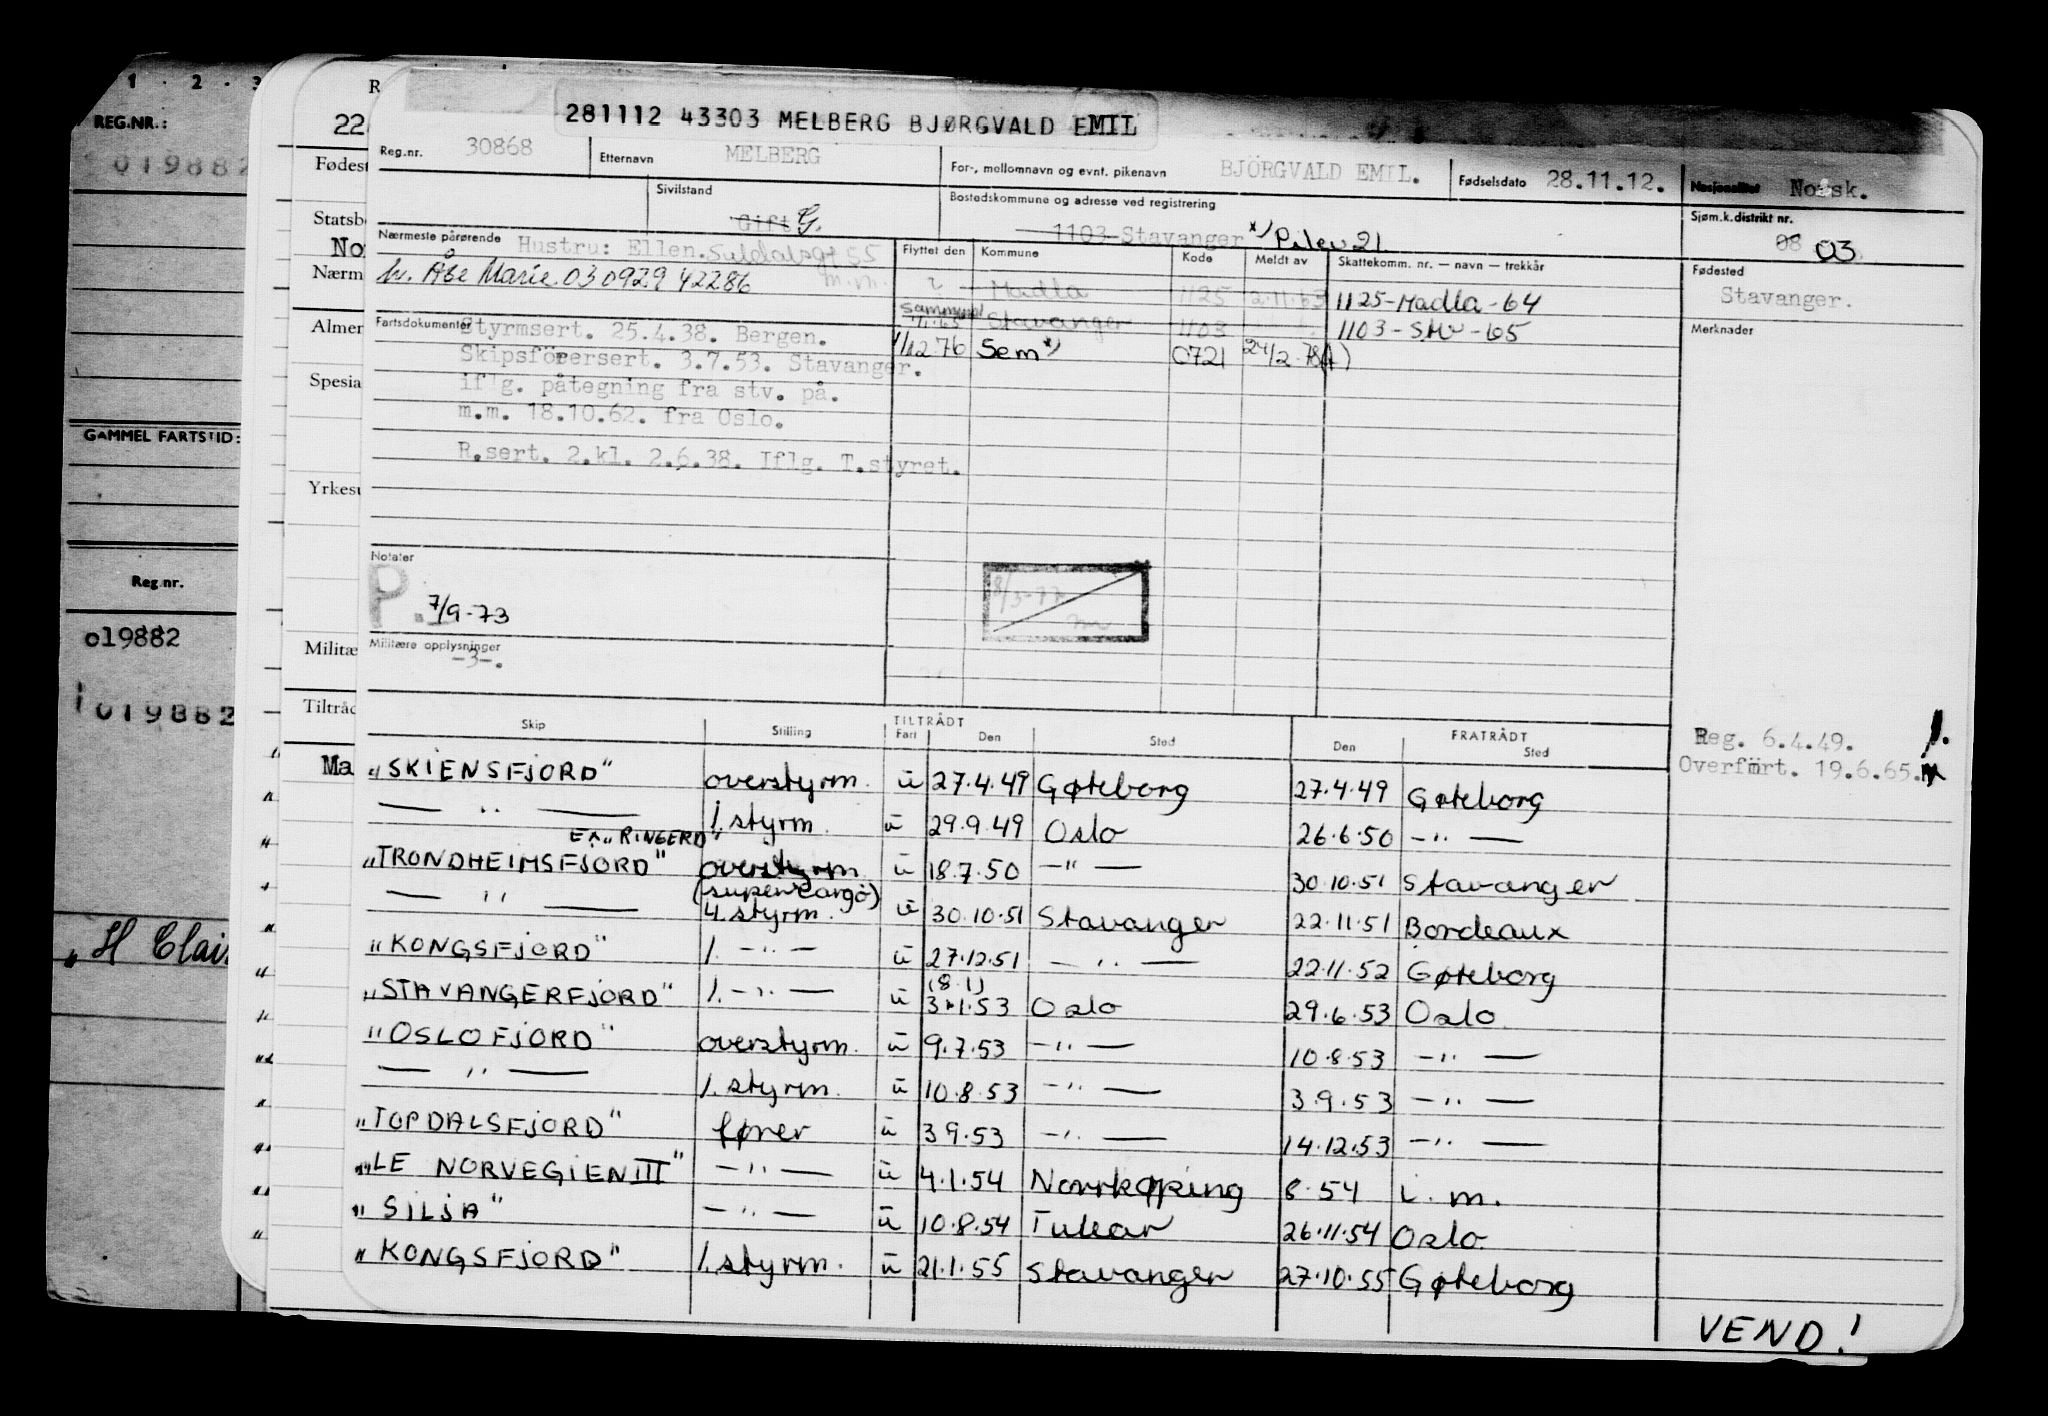 1 · 2 · 3
REG.NR.:
019882
GAMMEL FARTSTID:
Reg.nr.
o19882
019882
„H Clai
R
22
Fødest
Statsb
No
Nærm
Almer
Spesia
Yrkesu
Militæ
Tiltråd
Ma
281112 43303 MELBERG BJØRGVALD EMIL
Reg.nr. 30868 Etternavn MELBERG For-, mellomnavn og evnt. pikenavn BJÖRGVALD EMIL. Fødselsdato 28.11.12. Nasjonalitet Norsk.
Sivilstand Gift G. Bostedskommune og adresse ved registrering 1103 Stavanger x) Pilev 21 Sjøm.k.distrikt nr. 08 03
Nærmeste pårørende Hustru: Ellen. Suldalsgt 55 Flyttet den Kommune Kode Meldt av Skattekomm. nr. — navn — trekkår Fødested
h. Åbe Marie 030929 42286 m.m. Madla 1125 2.11.63 1125-Madla-64 Stavanger.
Fartsdokumenter Styrmsert. 25.4.38. Bergen. Stavanger 1103 1103-Stv-65 Merknader
Skipsförersert. 3.7.53. Stavanger. 1/12 76 Sem x) 0721 24/2-78
iflg. påtegning fra stv. på.
m.m. 18.10.62. fra Oslo.
R.sert. 2.kl. 2.6.38. Iflg. T.styret.
Notater
P. 7/9-73
Militære opplysninger
-3-.
Skip Stilling TILTRÅDT Fart Den Sted FRATRÅDT Den Sted
Reg. 6.4.49.
Overført. 19.6.65.
„SKIENSFJORD" overstyrm. u 27.4.49 Gøteborg 27.4.49 Gøteborg
— " — 1. styrm. u 29.9.49 Oslo 26.6.50 — " —
Ex „RINGERD"
„TRONDHEIMSFJORD" overstyrm. u 18.7.50 — " — 30.10.51 Stavanger
(supercargo)
— " — 4. styrm. u 30.10.51 Stavanger 22.11.51 Bordeaux
„KONGSFJORD" 1. — " — u 27.12.51 — " — 22.11.52 Gøteborg
(8.1)
„STAVANGERFJORD" 1. — " — u 3.1.53 Oslo 29.6.53 Oslo
„OSLOFJORD" overstyrm. u 9.7.53 — " — 10.8.53 — " —
— " — 1. styrm. u 10.8.53 — " — 3.9.53 — " —
„TOPDALSFJORD" fører u 3 9.53 — " — 14.12.53 — " —
„LE NORVEGIEN III" — " — u 4.1.54 Norrkøping 8.54 i. m.
„SILJA" — " — u 10.8.54 Tulear 26.11.54 Oslo
„KONGSFJORD" 1. styrm. u 21.1.55 Stavanger 27.10.55 Gøteborg
VEND!